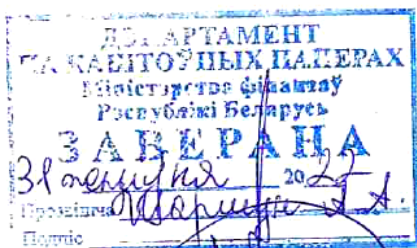 ДЭПАРТАМЕНТ
ПА КАШТОЎНЫХ ПАПЕРАХ
Міністэрства фінансаў
Рэспублікі Беларусь
ЗАВЕРАНА
31 20 22
Прозвішча А.
Подпіс